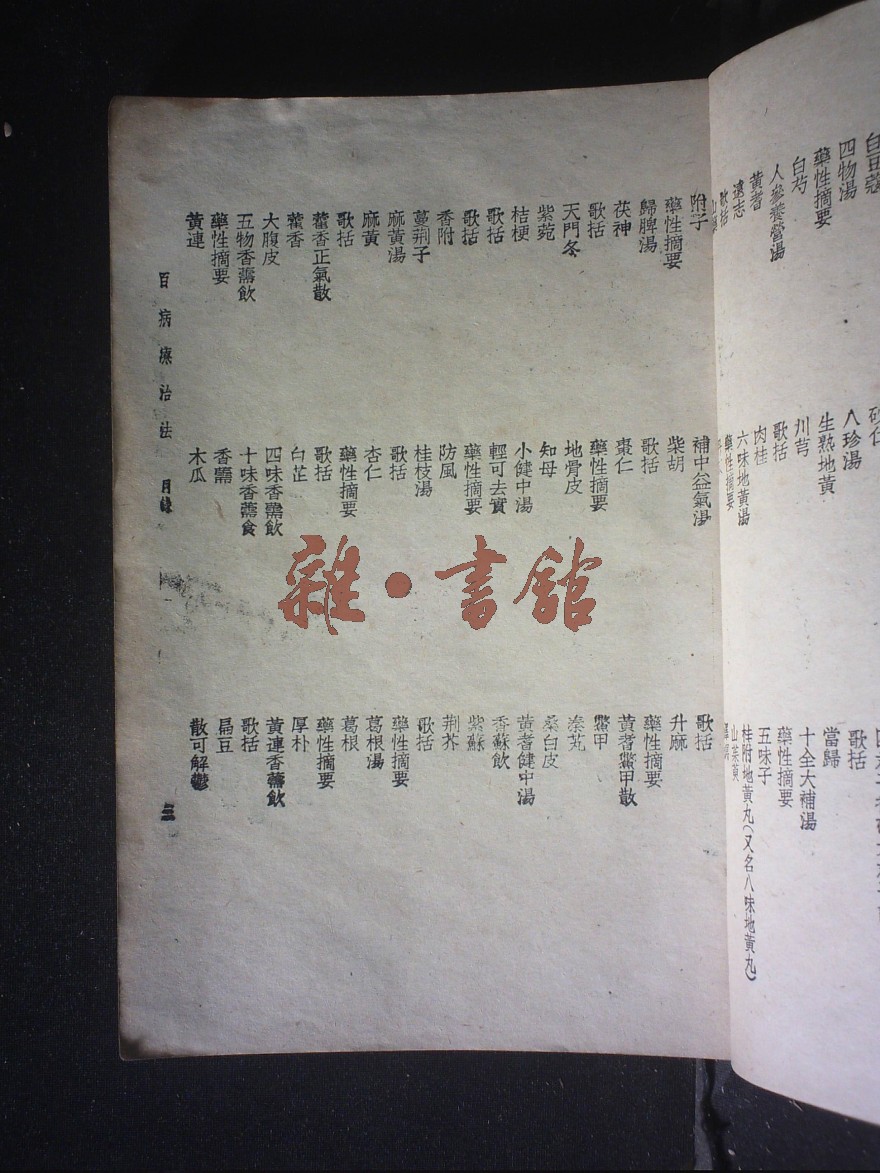 四物湯
八珍湯
歌括
藥性摘要
生熟地黃
當歸
白芍
川芎
十全大補湯
人參養營湯
歌括
藥性摘要
黃耆
肉桂
五味子
遠志
六味地黃湯
桂附地黃丸(又名八味地黃丸)
歌括
藥性摘要
山茱萸
附子
補中益氣湯
歌括
藥性摘要
柴胡
升麻
歸脾湯
歌括
藥性摘要
茯神
棗仁
黃耆鱉甲散
歌括
藥性摘要
鱉甲
天門冬
地骨皮
秦艽
紫菀
知母
桑白皮
桔梗
小健中湯
黃耆健中湯
歌括
輕可去實
香蘇飲
歌括
藥性摘要
紫蘇
香附
防風
荊芥
蔓荊子
桂枝湯
歌括
麻黃湯
歌括
藥性摘要
麻黃
杏仁
葛根湯
歌括
藥性摘要
葛根
藿香正氣散
歌括
藥性摘要
藿香
白芷
厚朴
大腹皮
四味香薷飲
黃連香薷飲
五物香薷飲
十味香薷食
歌括
藥性摘要
香薷
扁豆
黃連
木瓜
散可解鬱
百病療治法 目錄 三
雜·書館